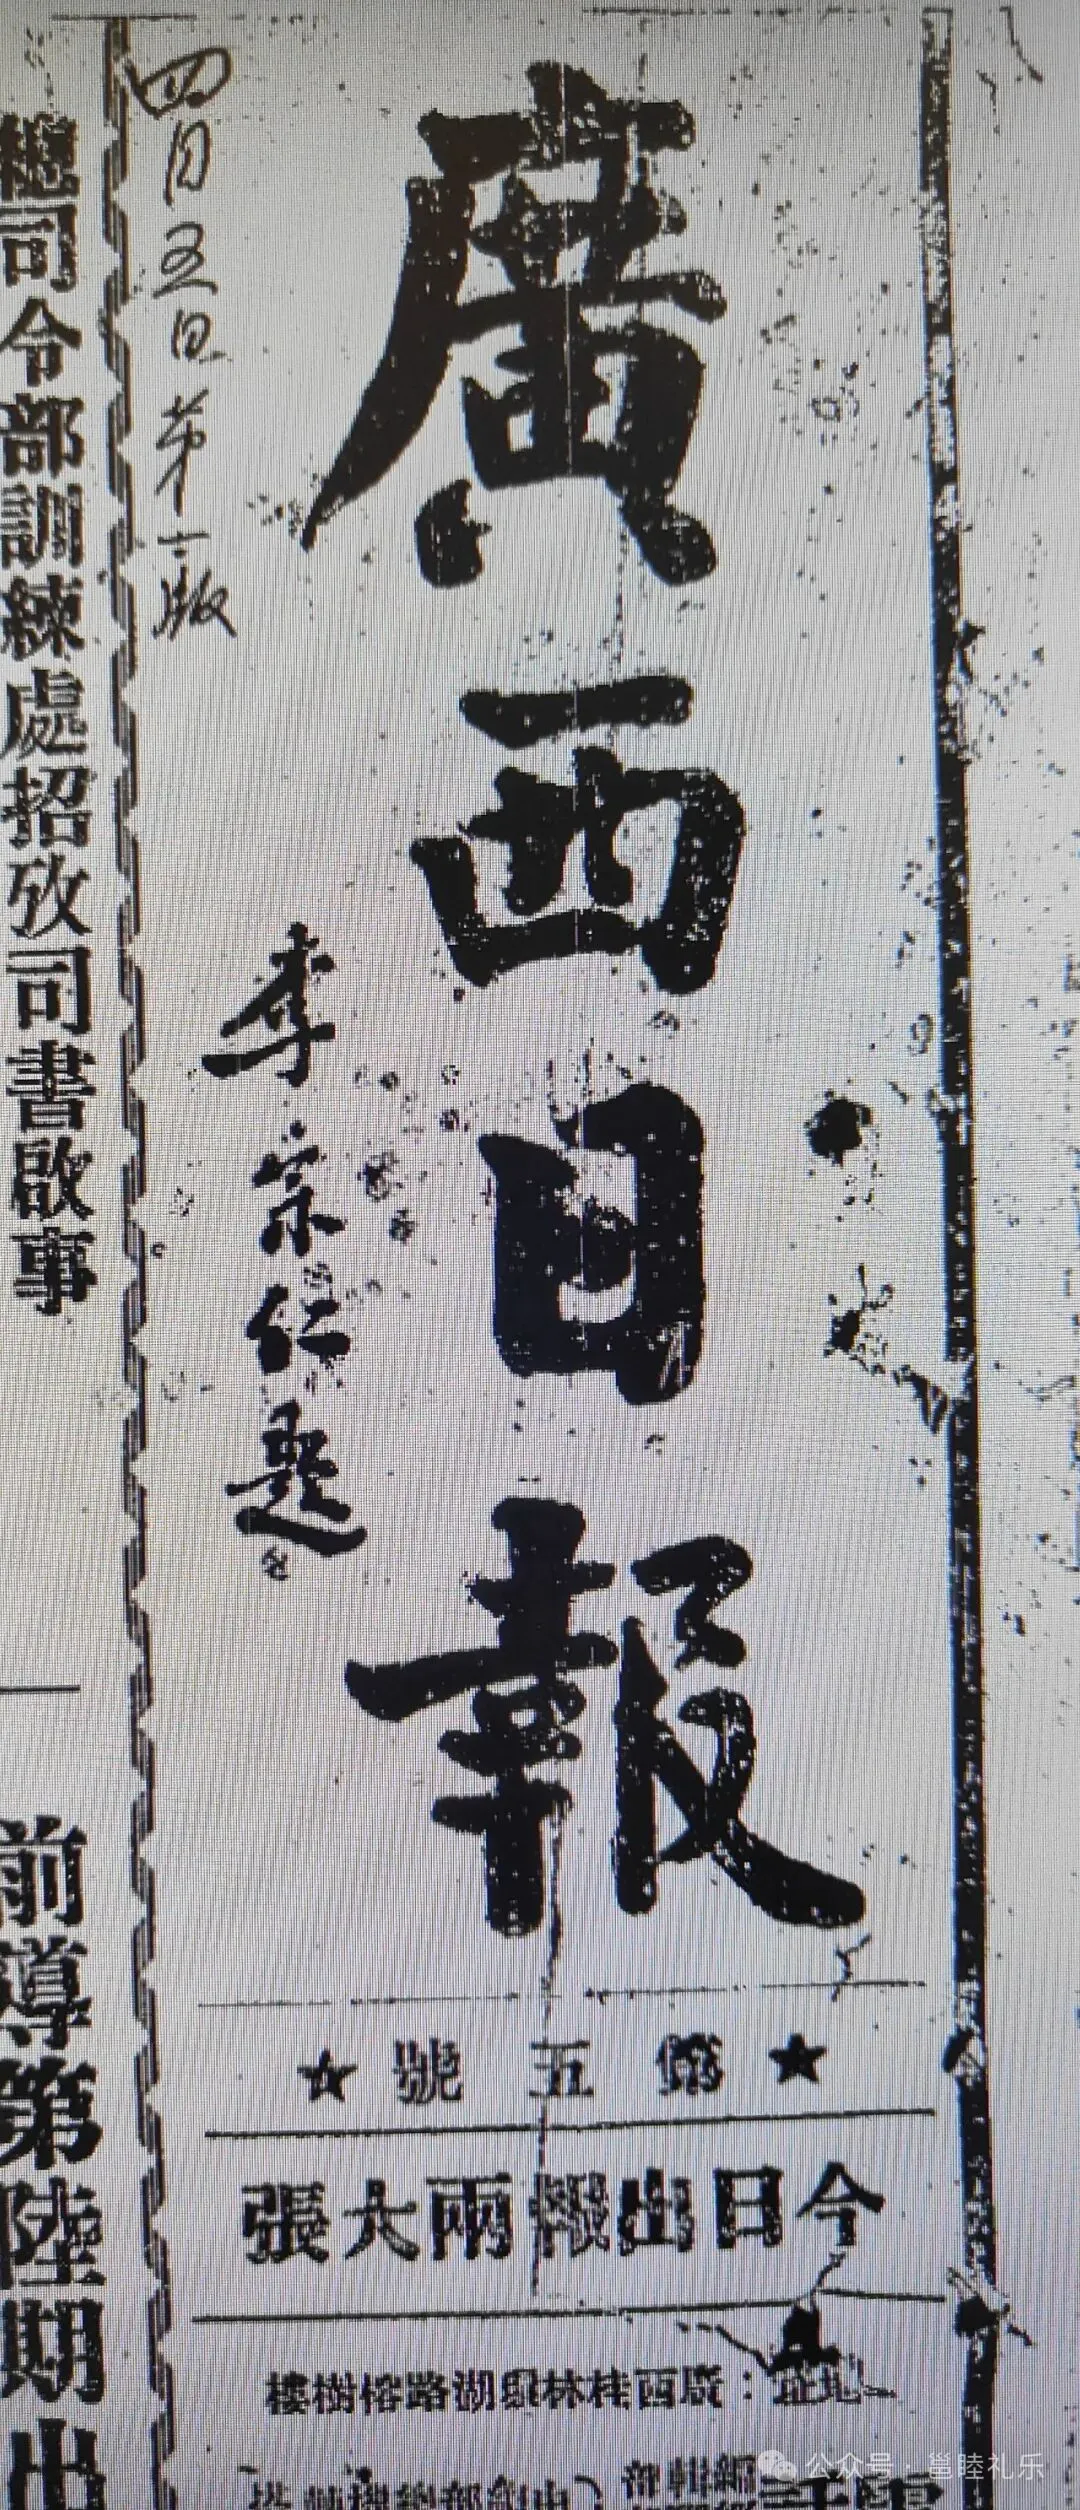 廣西日報
李宗仁題
四月五日第一版
總司令部訓練處招攷司書啟事
前導第陸期出
★第五號★
今日出報兩大張
地址：廣西桂林環湖路榕樹樓
電話
編輯部
公众号 · 邕睦礼乐